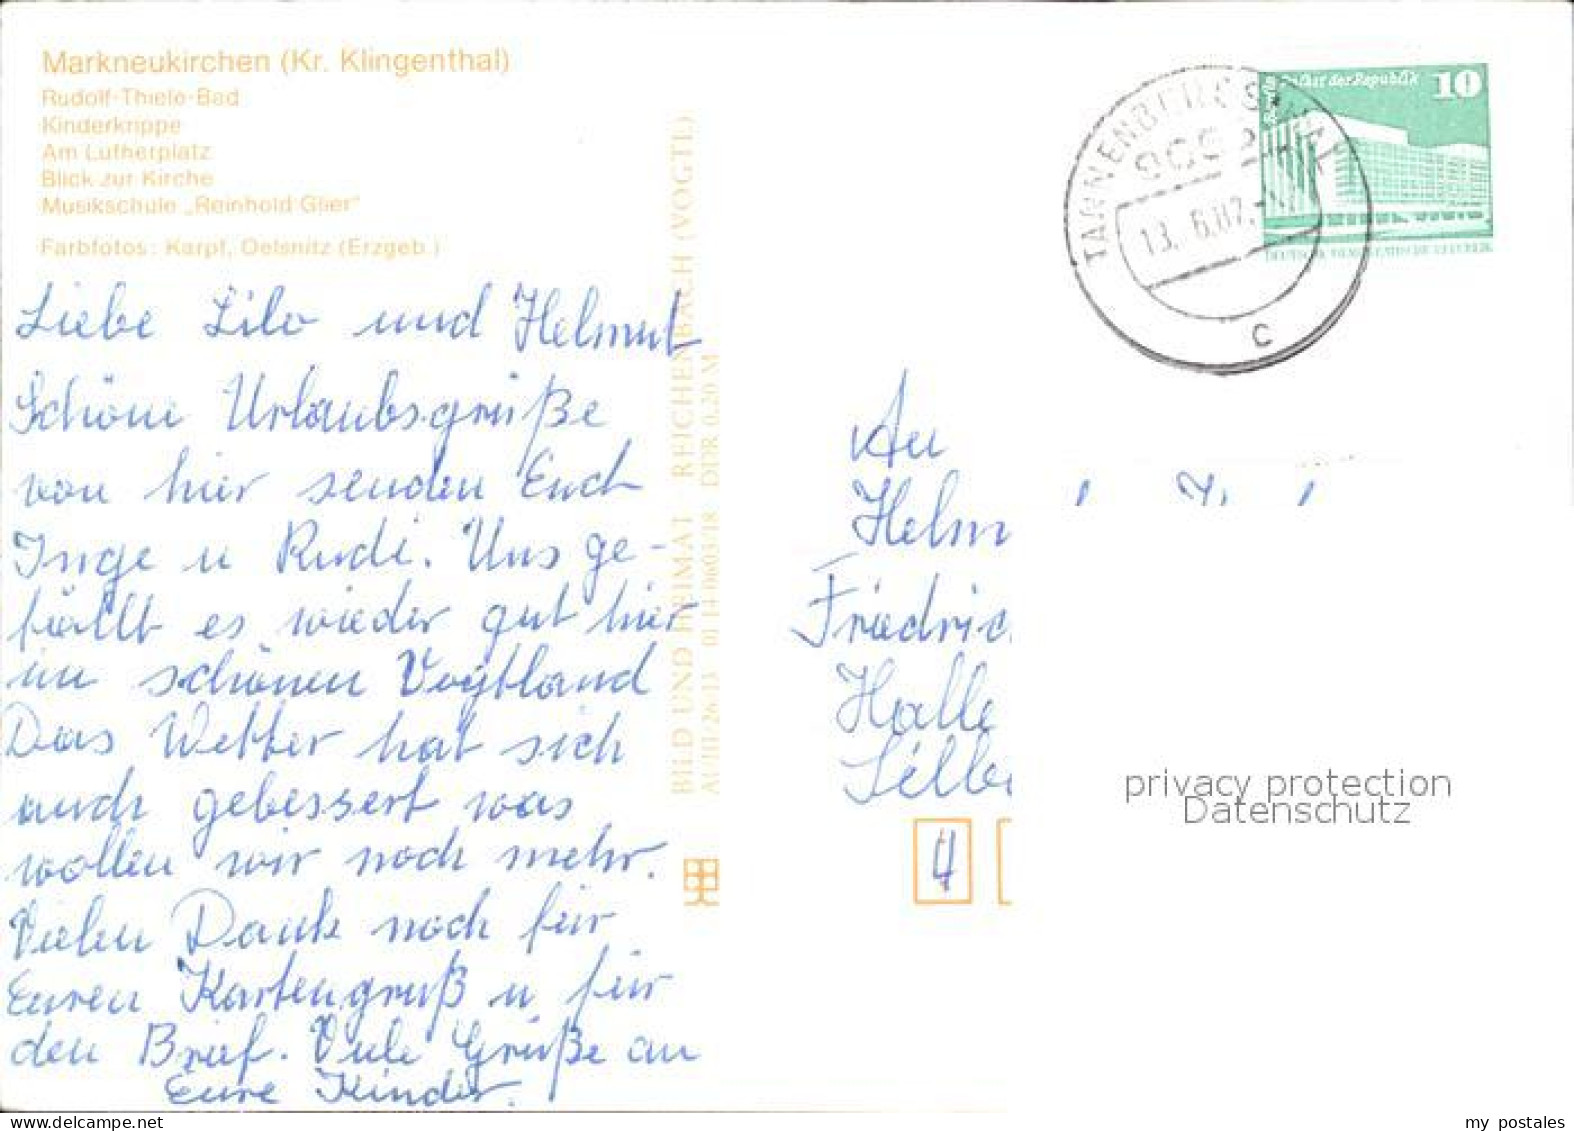 Markneukirchen (Kr. Klingenthal)
Rudolf-Thiele-Bad
Kinderkrippe
Am Lutherplatz
Blick zur Kirche
Musikschule „Reinhold Glier“
Farbfotos: Karpf, Oelsnitz (Erzgeb.)
Liebe Lilo und Helmut
Schöne Urlaubsgrüße
von hier senden Euch
Inge u Rudi. Uns ge-
fällt es wieder gut hier
im schönen Vogtland
Das Wetter hat sich
auch gebessert was
wollen wir noch mehr.
Vielen Dank noch für
Euren Kartengruß u für
den Brief. Viele Grüße an
Eure Kinder.
BILD UND HEIMAT REICHENBACH (VOGTL)
DDR 0,20 M
TANNENBERGSTHAL
13. 6.87
c
Berlin Palast der Republik 10
DEUTSCHE DEMOKRATISCHE REPUBLIK
An
Helm
Friedric
Halle
Silbe
4
privacy protection
Datenschutz
my postales